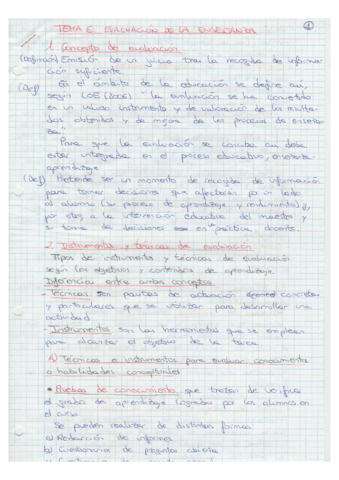 TEMA 6. EVALUACIÓN DE LA ENSEÑANZA
1
1. Concepto de evaluación
(Definición) Emisión de un juicio tras la recogida de información suficiente.
En el ámbito de la educación se define así,
(Def) según LOE (2006) "la evaluación se ha convertido
en un valioso instrumento y de valoración de los resultados
obtenidos y de mejora de los procesos de enseñanza"
Para que la evaluación se conciba así debe
estar integrada en el proceso educativo, enseñanza-
aprendizaje.
(Def) Pretende ser un momento de recogida de información
para tomar decisiones que afectarán por un lado
al alumno (su proceso de aprendizaje y rendimiento) y,
por otro, a la intervención educativa del maestro y
su toma de decisiones en práctica docente.
2. Instrumentos y técnicas de evaluación
Tipos de instrumentos y técnicas de evaluación
según los objetivos y contenidos de aprendizaje.
Diferencias entre ambos conceptos
- Técnicas son pautas de actuación concretas
y particulares que se utilizan para desarrollar una
actividad
- Instrumentos son las herramientas que se emplean
para alcanzar el objetivo de la tarea.
A) Técnicas e instrumentos para evaluar conocimientos
o habilidades conceptuales
• Pruebas de conocimiento que tratan de verificar
el grado de aprendizaje logrados por los alumnos en
el curso
Se pueden realizar de distintas formas:
a) Redacción de informes
b) Cuestionarios de preguntas abiertas